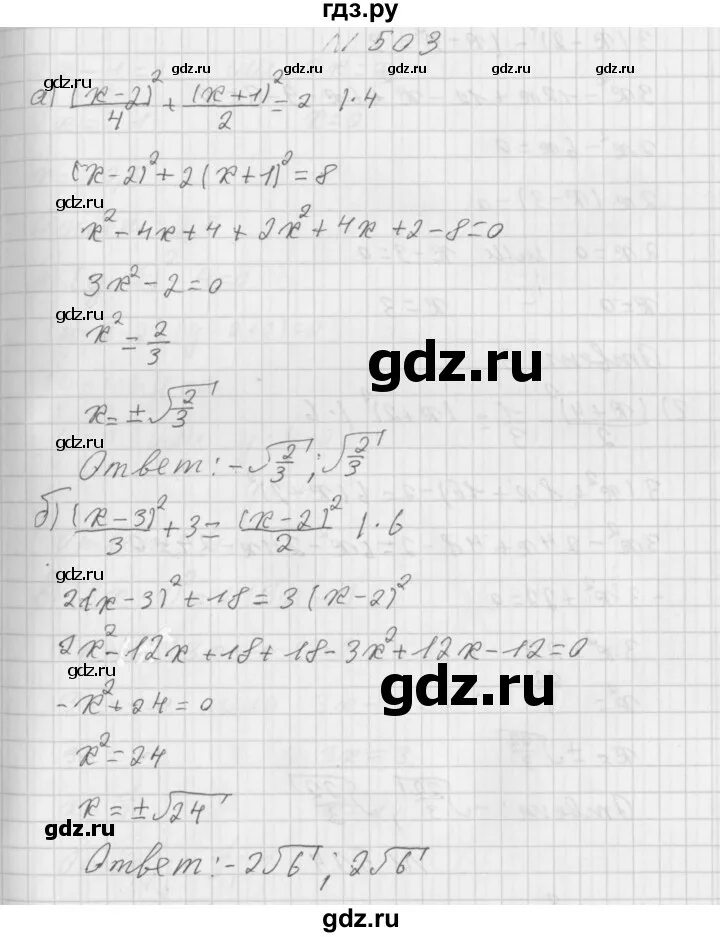 гдз.ру
N 503
gdz.ru gdz.ru gdz.ru
а) (x-2)²/4 + (x+1)²/2 = 2 |·4
(x-2)² + 2(x+1)² = 8
gdz.ru
x² - 4x + 4 + 2x² + 4x + 2 - 8 = 0
3x² - 2 = 0
gdz.ru
x² = 2/3
gdz.ru
x = ± √2/3
gdz.ru
Ответ: -√2/3 ; √2/3
б) (x-3)²/3 + 3 = (x-2)²/2 |·6
gdz.ru
2(x-3)² + 18 = 3(x-2)²
2x² - 12x + 18 + 18 - 3x² + 12x - 12 = 0
gdz.ru gdz.ru
-x² + 24 = 0
x² = 24
x = ± √24
gdz.ru gdz.ru gdz.ru
Ответ: -2√6 ; 2√6
гдз.ру